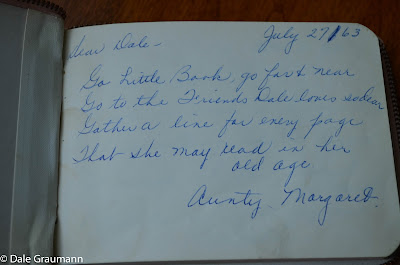 July 27/63
Dear Dale-
Go Little Book, go far & near
Go to the Friends Dale loves so dear
Gather a line for every page
That she may read in her
old age.
Aunty Margaret.
© Dale Graumann